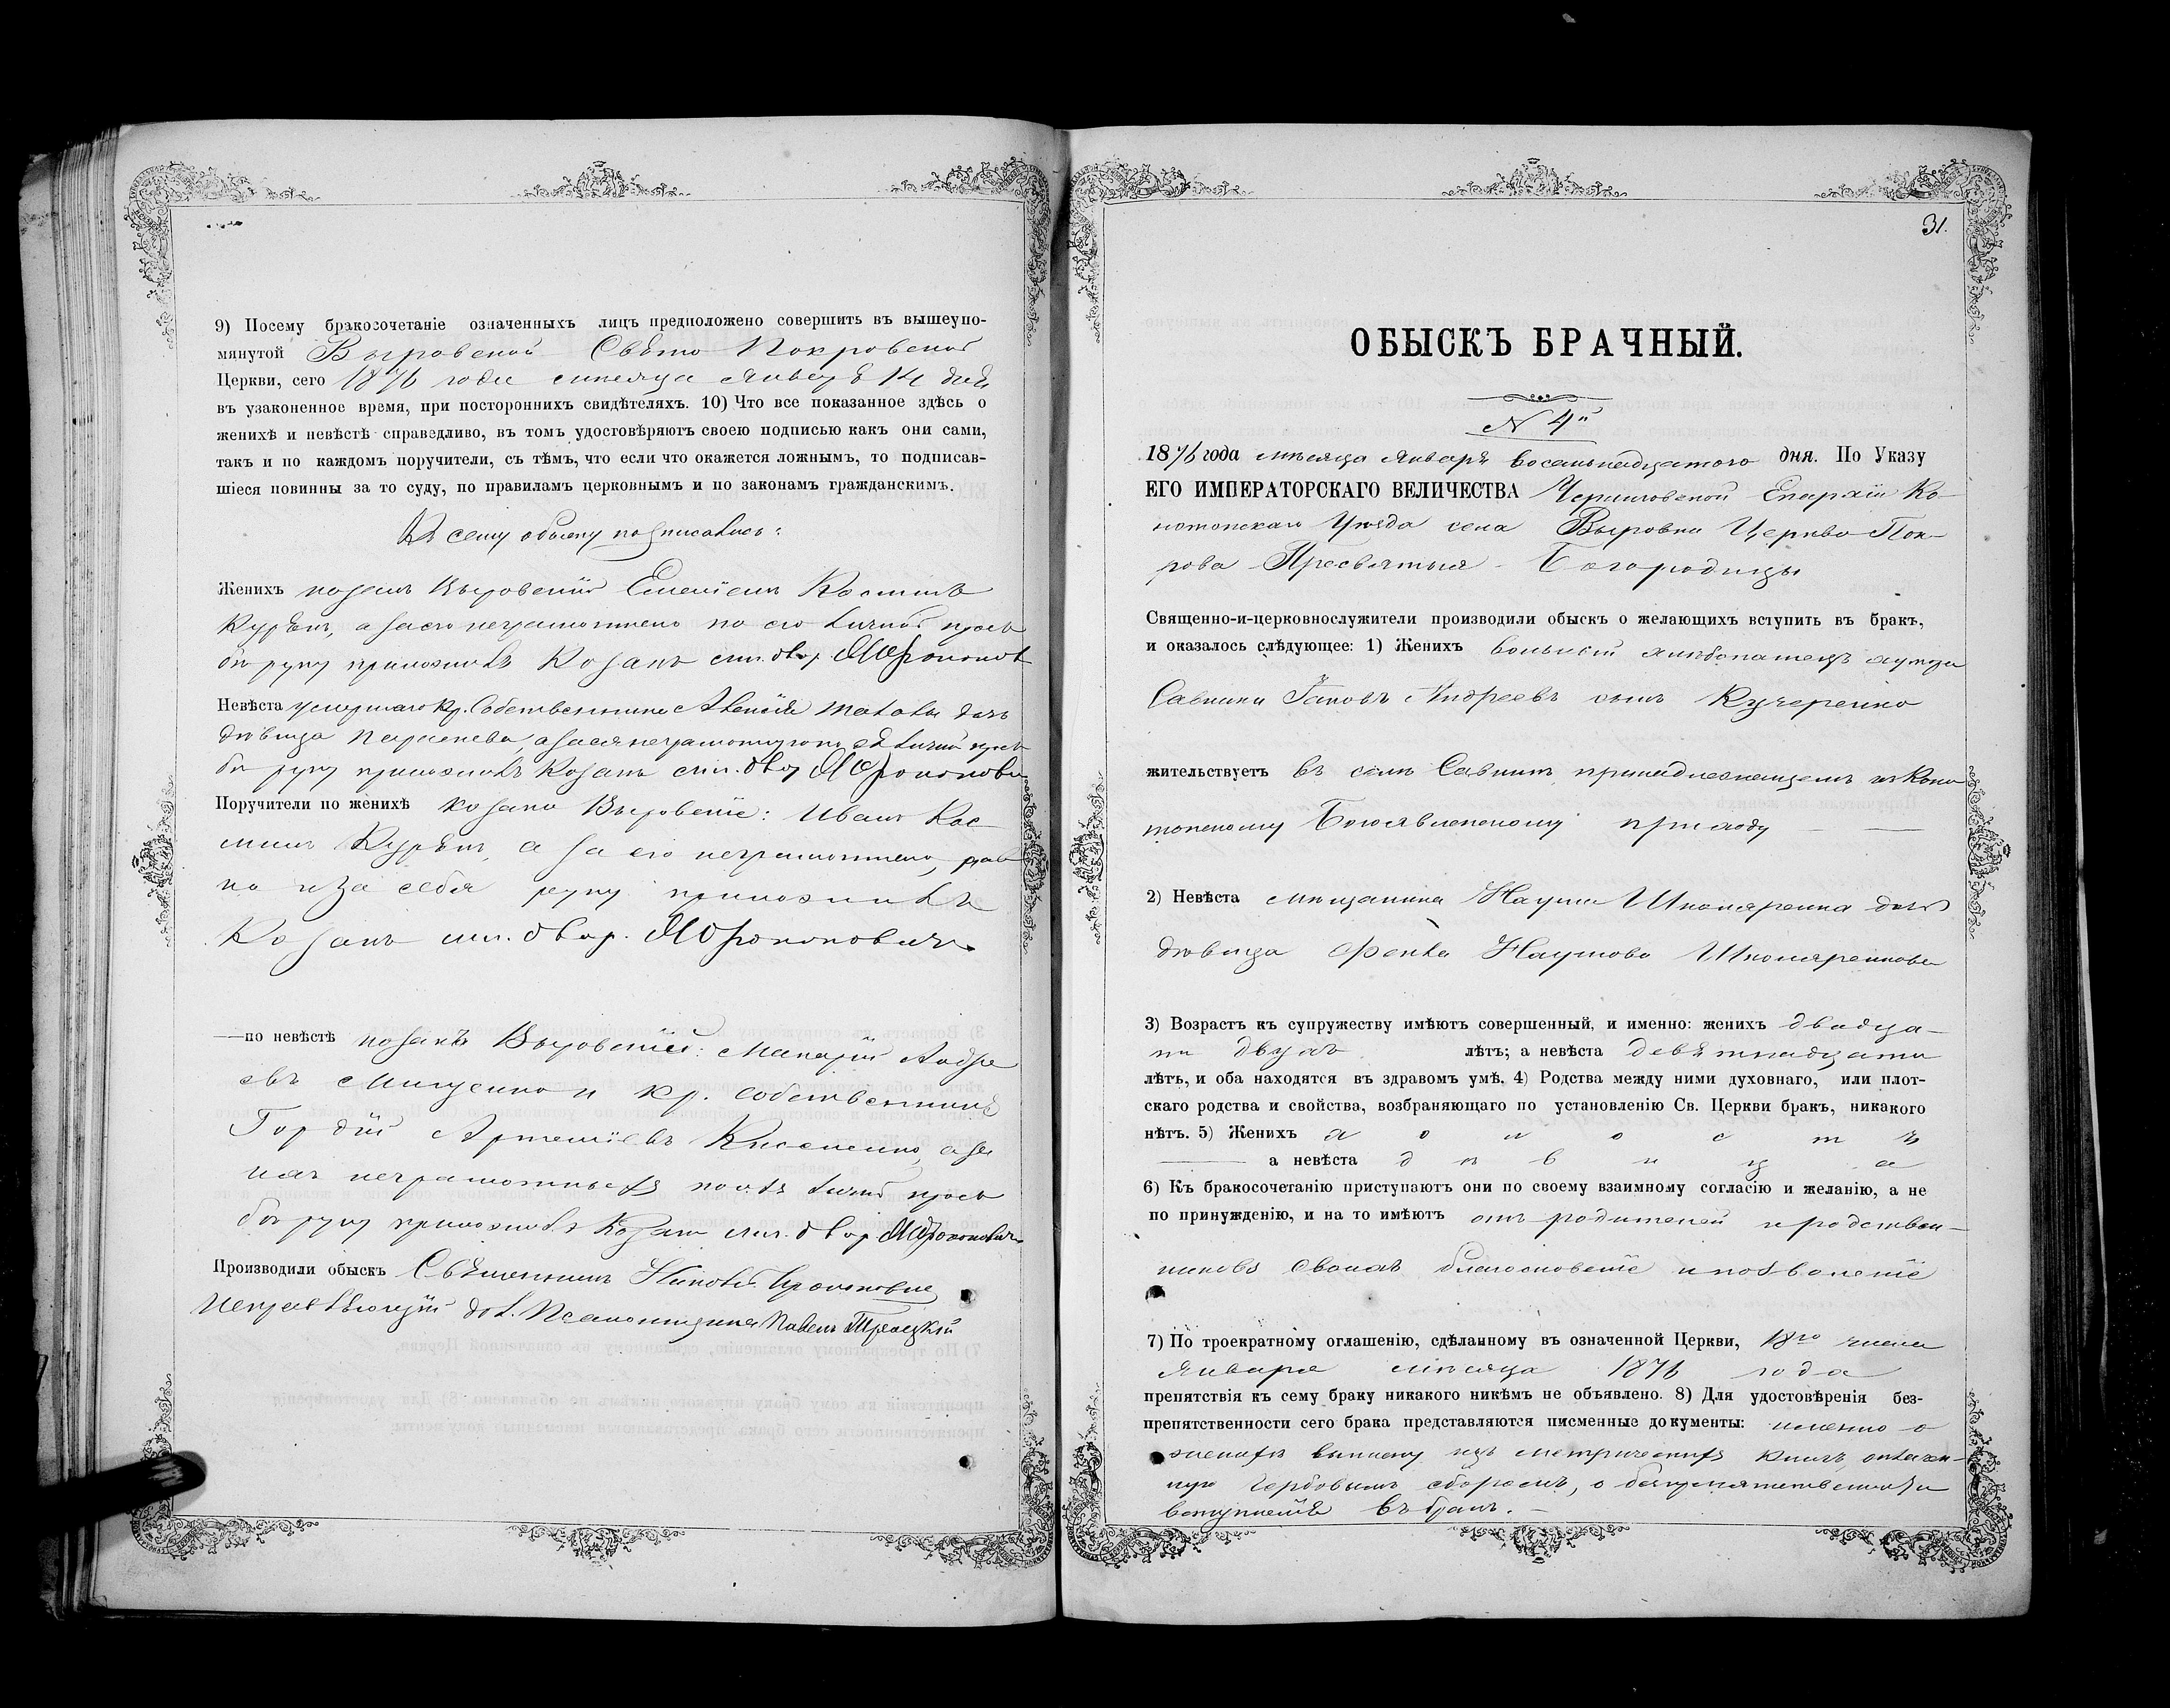 9) Посему бракосочетаніе означенныхъ лицъ предположено совершить въ вышеупо-
мянутой Выровской Свято Покровской
Церкви, сего 1876 года месяца Января 14 дня
въ узаконенное время, при постороннихъ свидѣтеляхъ. 10) Что все показанное здѣсь о
женихѣ и невѣстѣ справедливо, въ томъ удостовѣряютъ своею подписью какъ они сами,
такъ и по каждомъ поручители, съ тѣмъ, что если что окажется ложнымъ, то подписав-
шіеся повинны за то суду, по правиламъ церковнымъ и по законамъ гражданскимъ.
Къ сему обыску подписались:
Женихъ козакъ Выровскій
а за его неграмотного по его личной прось
бѣ руку приложилъ Козакъ
Невѣста умершаго Кр. Собственника дочь
дѣвица а за ея неграмотную по ея личной прось
бѣ руку приложилъ Козакъ
Поручители по женихѣ козаки Выровскіе: Иванъ Кос
минъ а за его неграмотного, рав
но и за себя руку приложилъ
Козакъ
—по невѣстѣ козакъ Выровскій: Макарій Андре
евъ и кр. собственникъ
Гордій Артеміевъ а за
ихъ неграмотныхъ по ихъ личной прось
бѣ руку приложилъ Козакъ
Производили обыскъ Священникъ
Исправляющій дол. Псаломщика Павелъ Троицкій
31.
ОБЫСКЪ БРАЧНЫЙ.
N 4й
1876 года мѣсяца Января восемьнадцатого дня. По Указу
ЕГО ИМПЕРАТОРСКАГО ВЕЛИЧЕСТВА Черниговской Епархіи Ко-
нотопскаго Уѣзда села Выровки Церкви Пок-
рова Пресвятыя Богородицы
Священно-и-церковнослужители производили обыскъ о желающихъ вступить въ бракъ,
и оказалось слѣдующее: 1) Женихъ вольный хлѣбопашецъ хутора
Савинки Яковъ Андреевъ сынъ Кучеренко
жительствуетъ въ селѣ Савинкѣ принадлежащемъ къ Коно
топскому Богоявленскому приходу
2) Невѣста мѣщанина Наума Шкляренка дочь
дѣвица Фекла Наумова Шкляренкова
3) Возрастъ къ супружеству имѣютъ совершенный, и именно: женихъ двадца-
ти двухъ лѣтъ; а невѣста девятнадцати
лѣтъ, и оба находятся въ здравомъ умѣ. 4) Родства между ними духовнаго, или плот-
скаго родства и свойства, возбраняющаго по установленію Св. Церкви бракъ, никакого
нѣтъ. 5) Женихъ холостъ
а невѣста дѣвица
6) Къ бракосочетанію приступаютъ они по своему взаимному согласію и желанію, а не
по принужденію, и на то имѣютъ отъ родителей и родствен-
никовъ своихъ благословеніе и позволеніе
7) По троекратному оглашенію, сдѣланному въ означенной Церкви, 18го числа
Января мѣсяца 1876 года
препятствія къ сему браку никакого никѣмъ не объявлено. 8) Для удостовѣренія без-
препятственности сего брака представляются писменные документы: именно о
женихѣ выписку изъ метрическихъ книгъ, оплачен-
ную гербовымъ сборомъ, о безпрепятственности
вступленія въ бракъ.